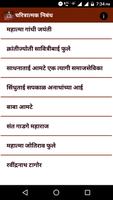 7:34 AM
चरित्रात्मक निबंध
महात्मा गांधी जयंती
क्रांतीज्योती सावित्रीबाई फुले
साधनाताई आमटे एक त्यागी समाजसेविका
सिंधुताई सपकाळ अनाथांच्या आई
बाबा आमटे
संत गाडगे महाराज
महात्मा जोतिराव फुले
रवींद्रनाथ टागोर